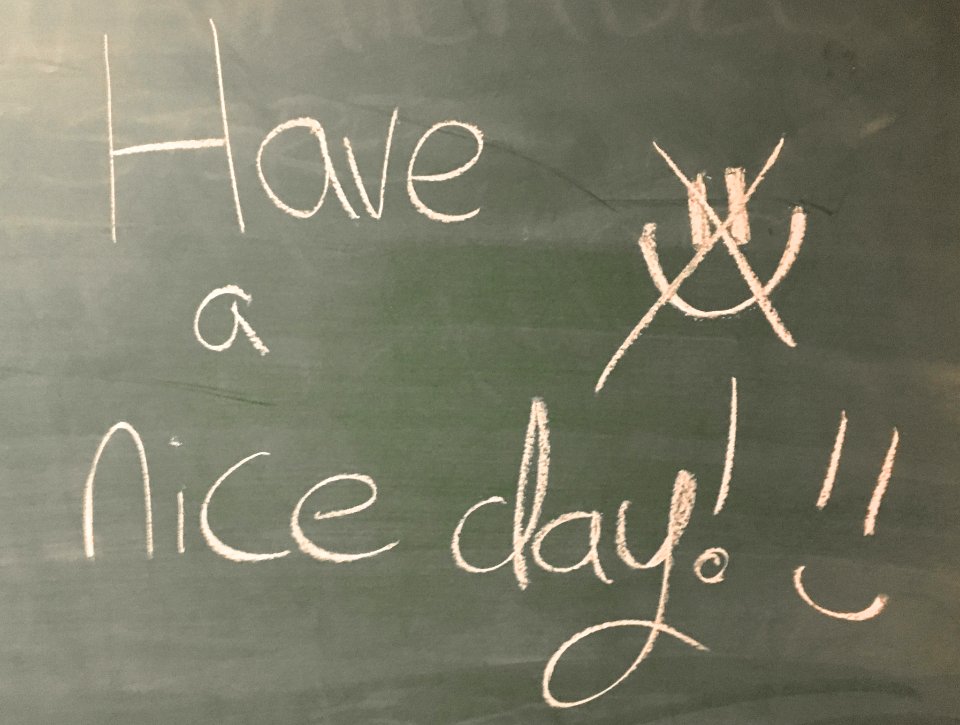 Have
a
nice day!